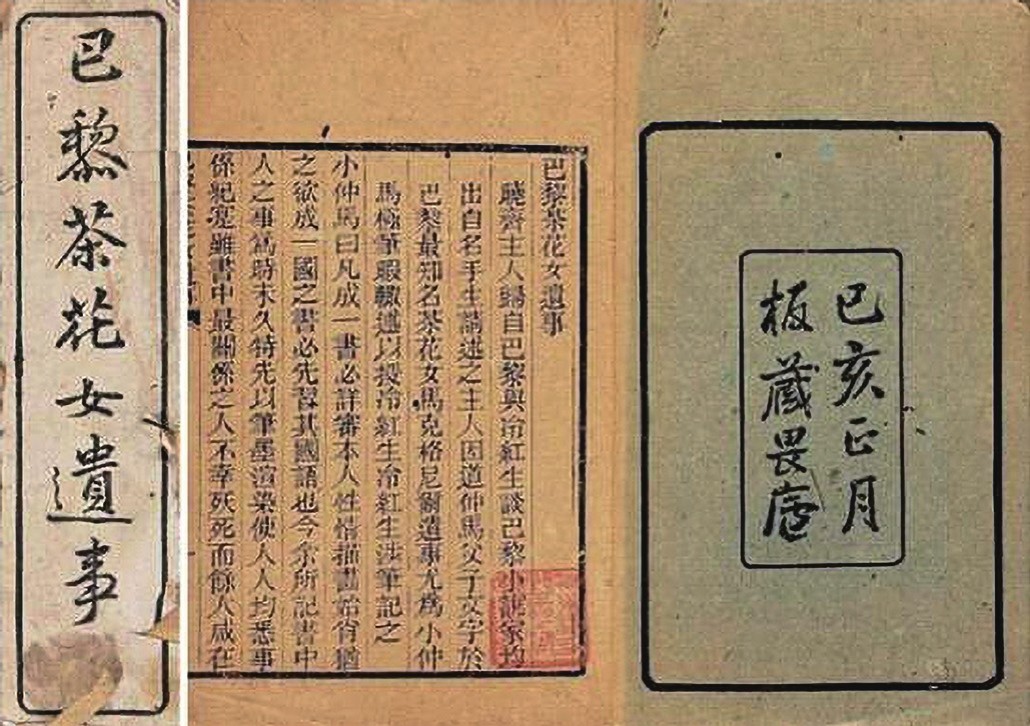 巴黎茶花女遺事
己亥正月
板藏畏庐
巴黎茶花女遺事
曉齋主人歸自巴黎與冷紅生談巴黎小說家均
出自名手生請述之主人因道仲馬父子文字於
巴黎最知名茶花女馬克格尼爾遺事尤爲小仲
馬極筆暇輒述以授冷紅生冷紅生涉筆記之
小仲馬曰凡成一書必詳審本人性情描畫始肖猶
之欲成一國之書必先習其國語也今余所記書中
人之事爲時未久特先以筆墨渲染使人人均悉事
係紀寔雖書中最關係之人不幸殀死而餘人咸在